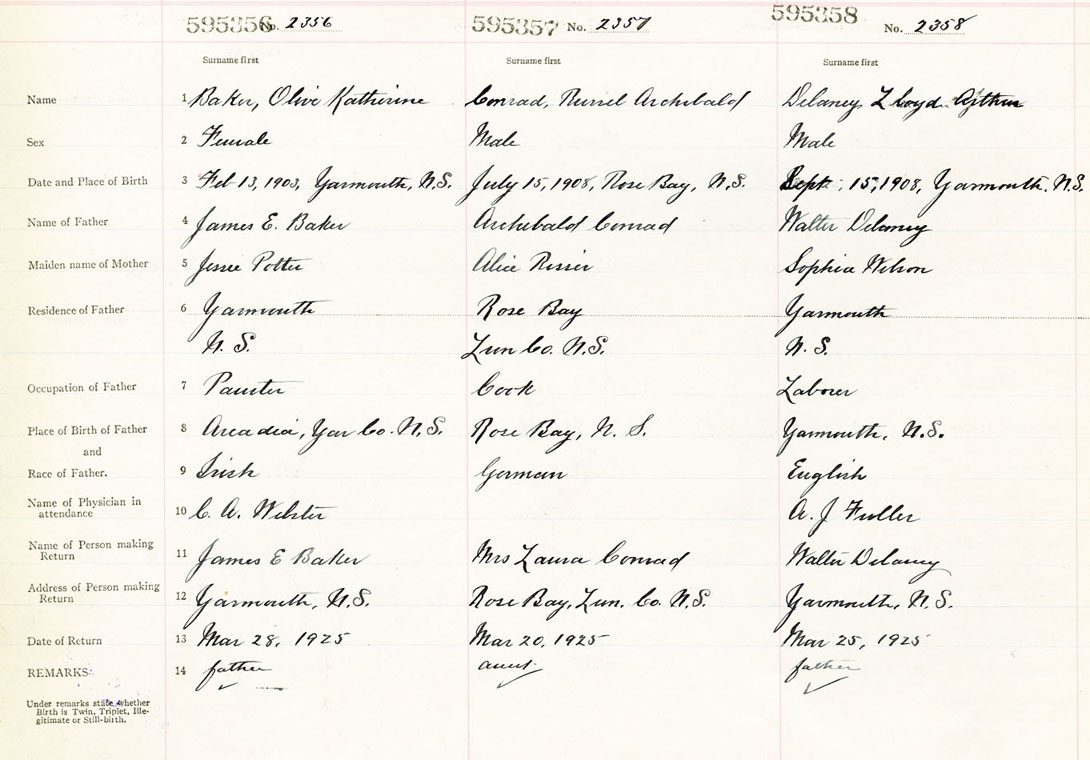 595356 No. 2356 595357 No. 2357 595358 No. 2358
Surname first Surname first Surname first
Name 1 Baker, Olive Katherine Conrad, Russel Archibald Delaney, Lloyd Arthur
Sex 2 Female Male Male
Date and Place of Birth 3 Feb 13, 1903, Yarmouth, N.S. July 15, 1908, Rose Bay, N.S. Sept. 15, 1908, Yarmouth. N.S.
Name of Father 4 James E. Baker Archibald Conrad Walter Delaney
Maiden name of Mother 5 Jessie Potter Alice Risser Sophia Wilson
Residence of Father 6 Yarmouth Rose Bay Yarmouth
N. S. Lun Co. N.S. N. S.
Occupation of Father 7 Painter Cook Laborer
Place of Birth of Father 8 Arcadia, Yar Co. N.S. Rose Bay, N. S. Yarmouth, N.S.
and
Race of Father. 9 Irish German English
Name of Physician in
attendance 10 C. A. Webster A. J Fuller
Name of Person making
Return 11 James E Baker Mrs Laura Conrad Walter Delaney
Address of Person making
Return 12 Yarmouth, N.S. Rose Bay, Lun. Co. N.S. Yarmouth, N.S.
Date of Return 13 Mar 28, 1925 Mar 20, 1925 Mar 25, 1925
REMARKS 14 father aunt father
Under remarks state whether
Birth is Twin, Triplet, Ille-
gitimate or Still-birth.